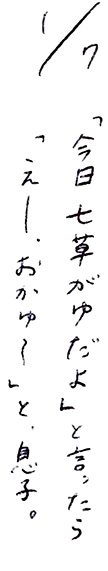 1/7
「今日七草がゆだよ」と言ったら
「えー、おかゆ〜」と、息子。